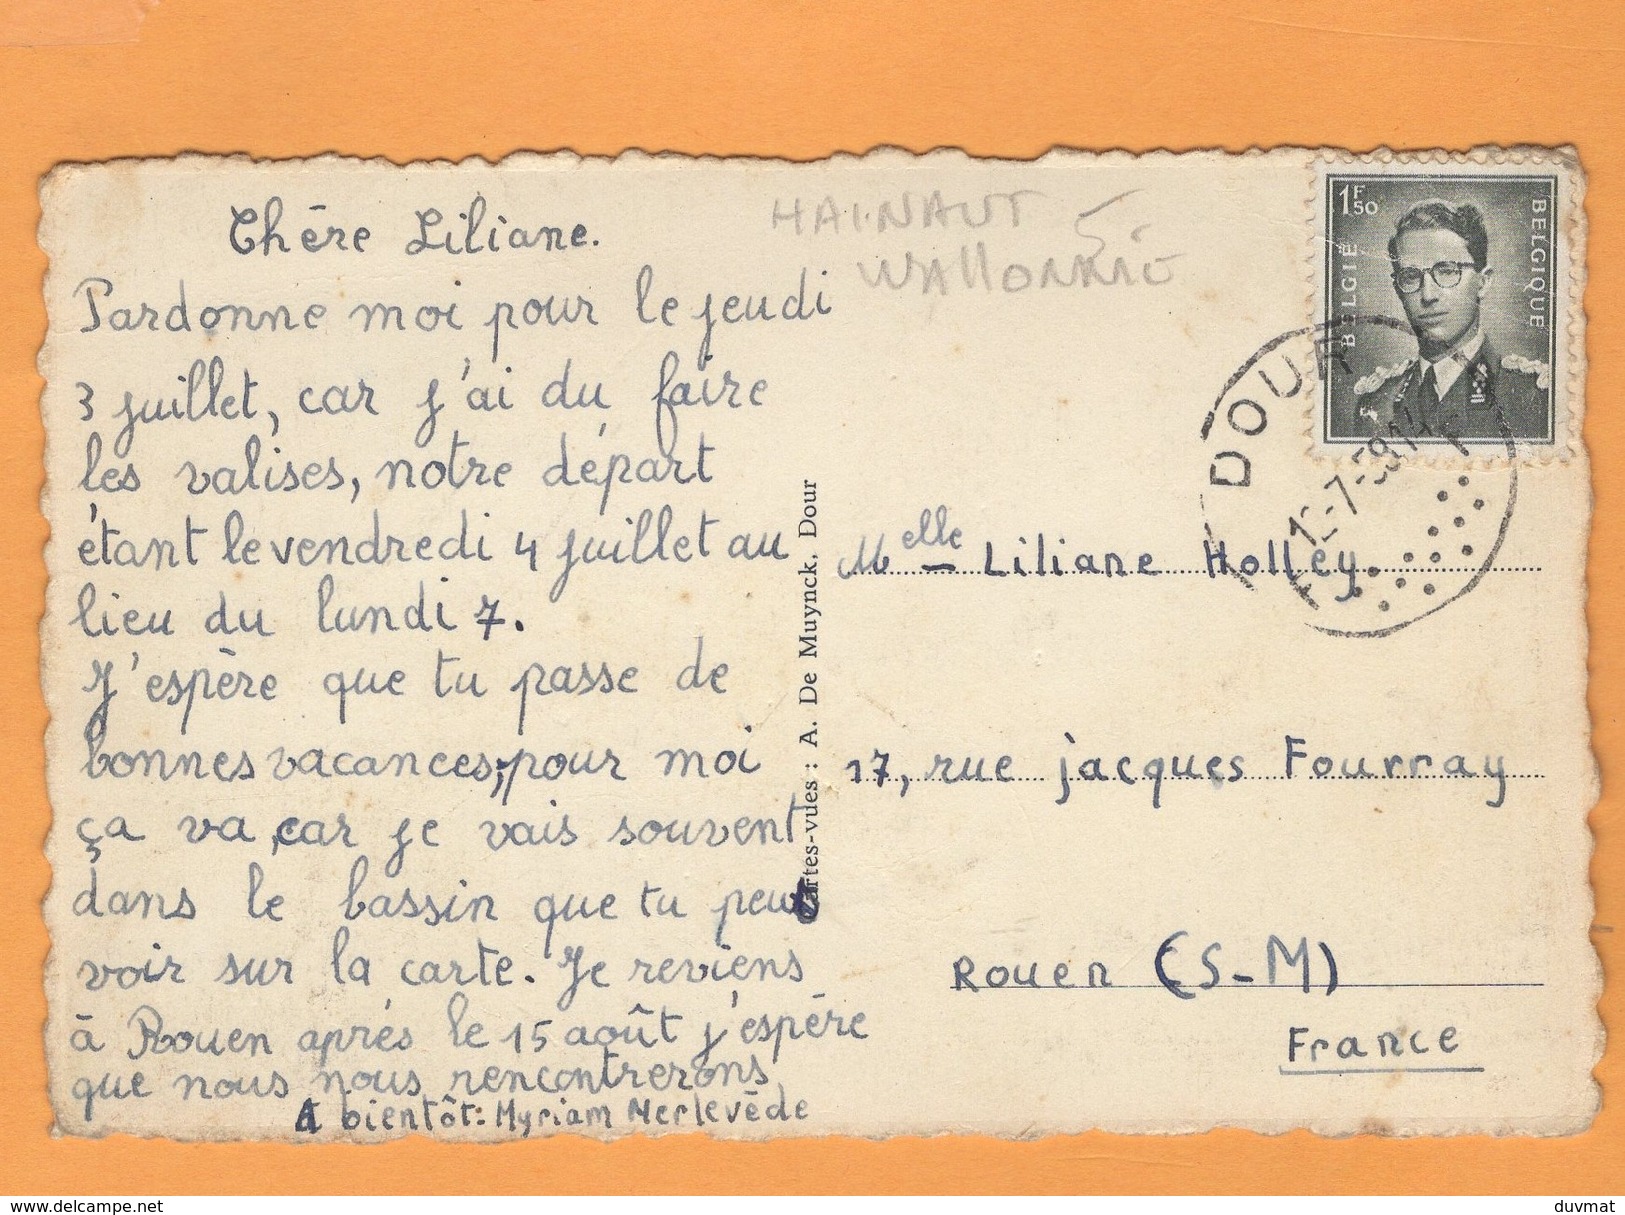 Chère Liliane.
Pardonne moi pour le jeudi
3 juillet, car j'ai du faire
les valises, notre départ
étant le vendredi 4 juillet au
lieu du lundi 7.
J'espère que tu passe de
bonnes vacances, pour moi
ça va, car je vais souvent
dans le bassin que tu peut
voir sur la carte. Je reviens
à Rouen après le 15 août j'espère
que nous nous rencontrerons
A bientôt: Myriam Merlevède
Cartes-vues : A. De Muynck, Dour
HAINAUT
WALLONNIE
1F50
BELGIE
BELGIQUE
DOUR
-7-59 14
Melle Liliane Holley
17, rue jacques Fourray
Rouen (S-M)
France
delcampe.net
duvmat